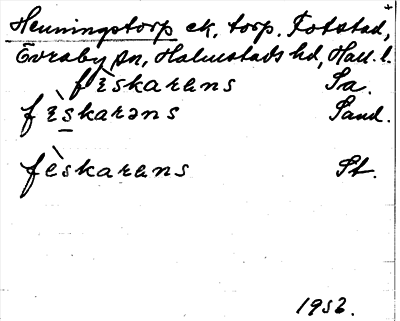 Henningstorp ek. torp. Fotstad,
Övraby sn, Halmstads hd, Hall. l.
fɛ̀skarɐns Sa.
fɛ̀skarəns Sand.
fèskarɐns St.
1952.